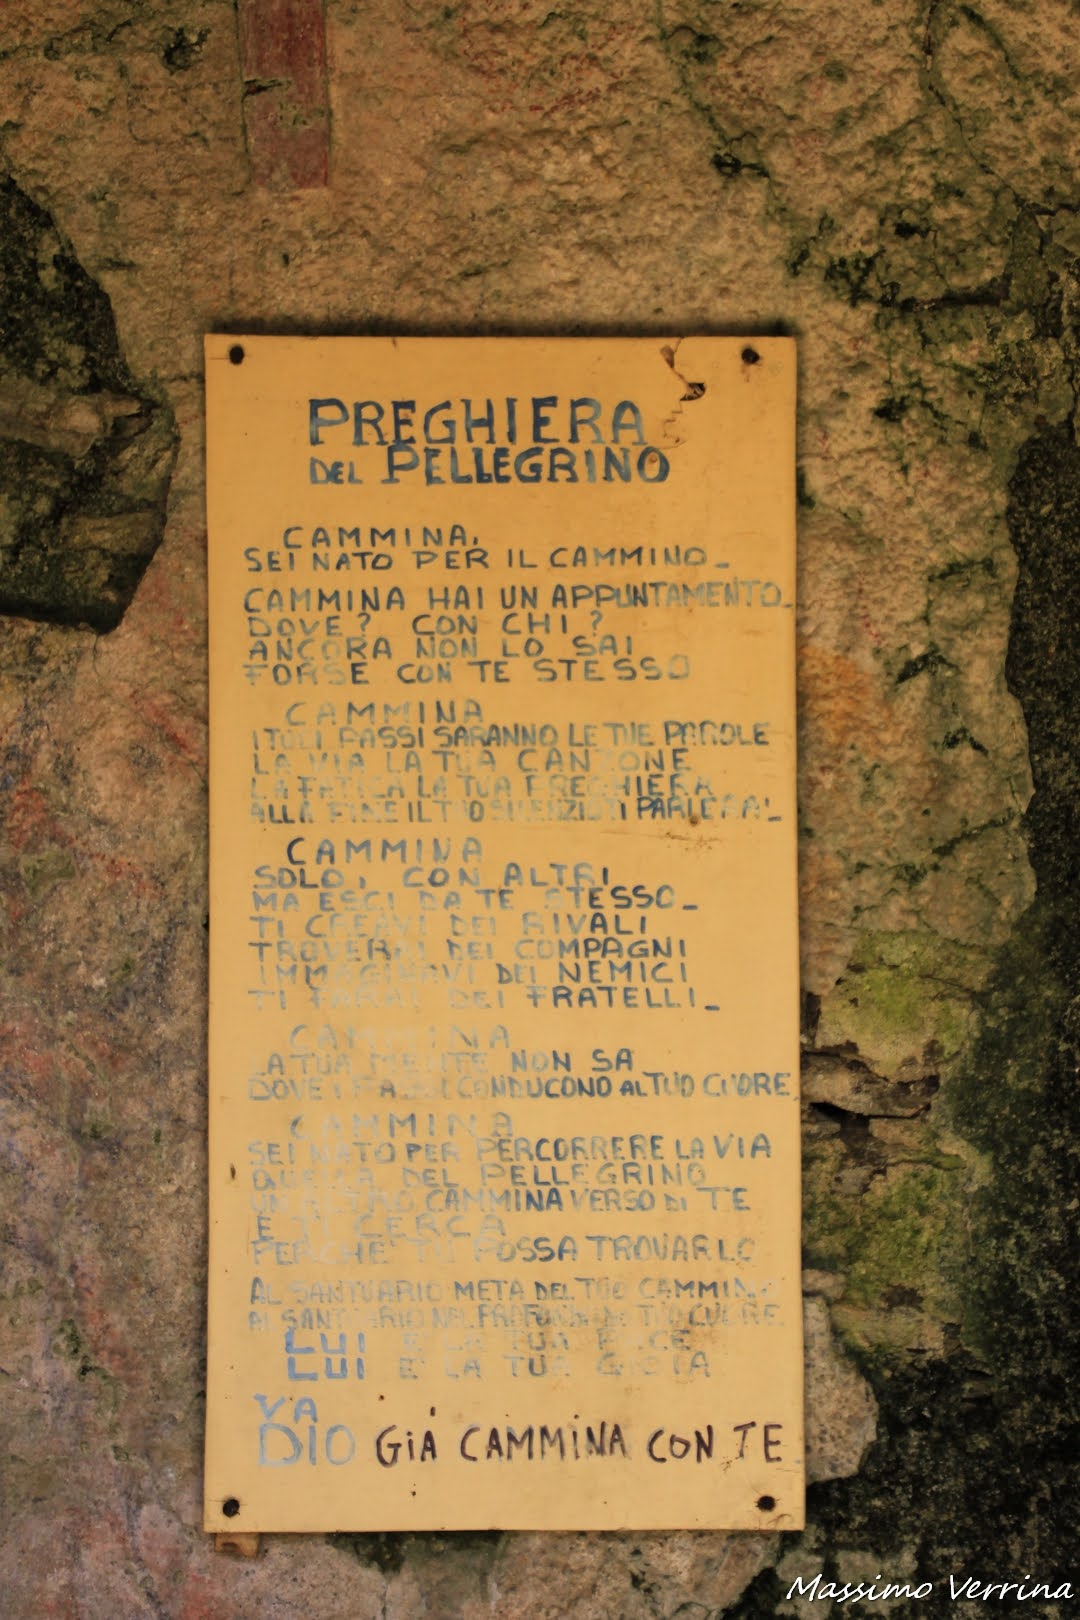 PREGHIERA
DEL PELLEGRINO
CAMMINA,
SEI NATO PER IL CAMMINO_
CAMMINA HAI UN APPUNTAMENTO_
DOVE? CON CHI?
ANCORA NON LO SAI
FORSE CON TE STESSO
CAMMINA
I TUOI PASSI SARANNO LE TUE PAROLE
LA VIA LA TUA CANZONE
LA FATICA LA TUA PREGHIERA
ALLA FINE IL TUO SILENZIO TI PARLERA'_
CAMMINA
SOLO, CON ALTRI
MA ESCI DA TE STESSO_
TI CREAVI DEI RIVALI
TROVERAI DEI COMPAGNI
IMMAGINAVI DEI NEMICI
TI FARAI DEI FRATELLI_
CAMMINA
LA TUA MENTE NON SA
DOVE I PASSI CONDUCONO AL TUO CUORE
CAMMINA
SEI NATO PER PERCORRERE LA VIA
QUELLA DEL PELLEGRINO
UN ALTRO CAMMINA VERSO DI TE
E TI CERCA
PERCHE' TU POSSA TROVARLO
AL SANTUARIO META DEL TUO CAMMINO
AL SANTUARIO NEL PROFONDO DEL TUO CUORE
LUI E' LA TUA PACE
LUI E' LA TUA GIOIA
VA
DIO GIÁ CAMMINA CON TE
Massimo Verrina